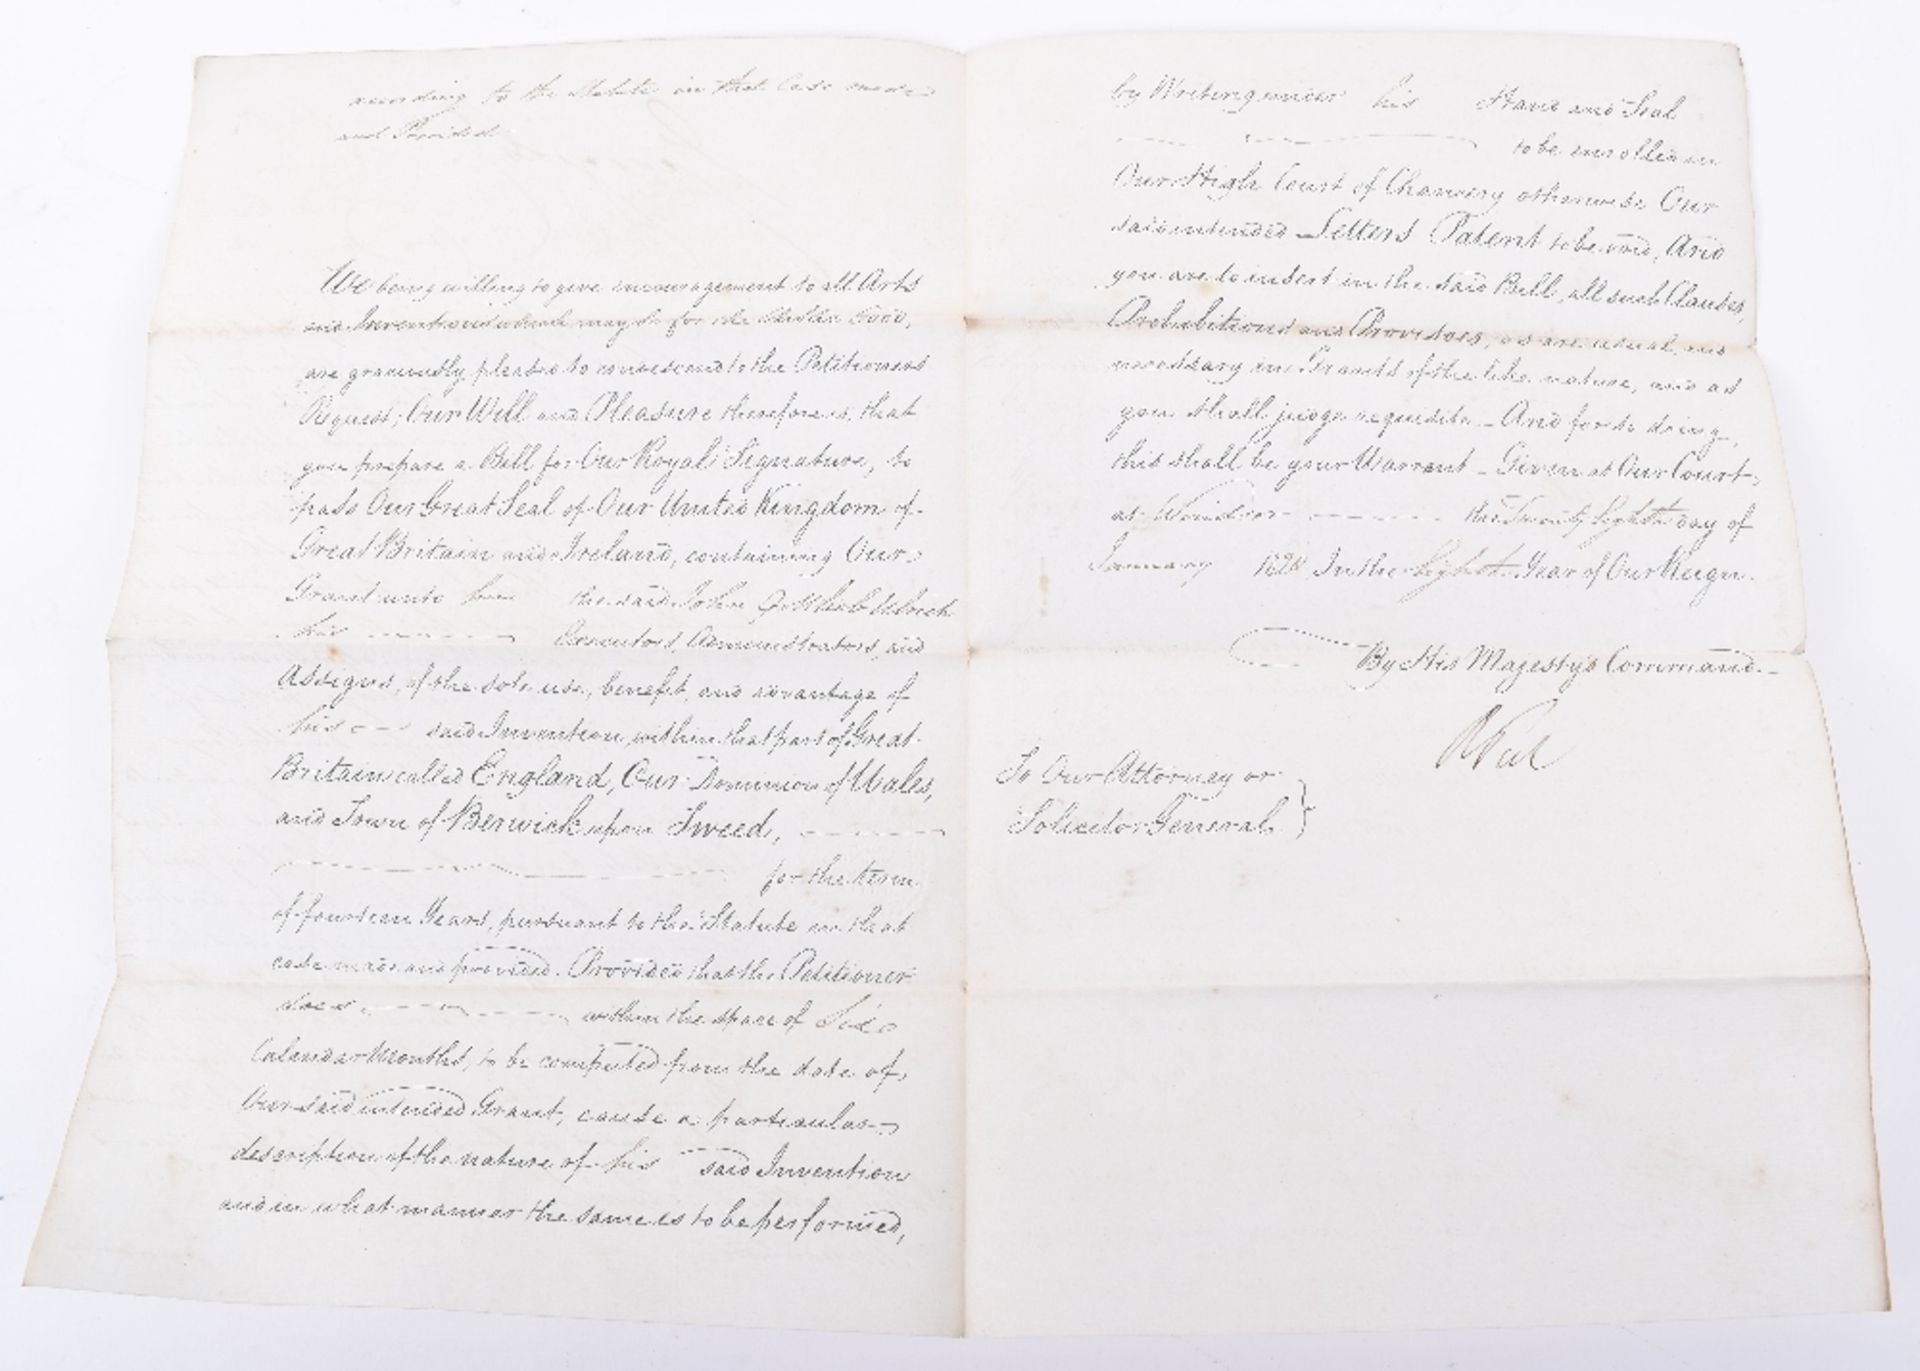 according to the Statute in that Case made
and Provided
We being willing to give encouragement to all Arts
and Inventions which may be for the Public Good,
are graciously pleased to condescend to the Petitioners
Request; Our Will and Pleasure therefore is, that
you prepare a Bill for Our Royal Signature, to
pass Our Great Seal of Our United Kingdom of
Great Britain and Ireland, containing Our
Grant unto him the said John Gottlieb Ulrich
his Executors, Administrators, and
Assigns, of the sole use, benefit, and advantage of
his said Invention, within that part of Great
Britain called England, Our Dominion of Wales,
and Town of Berwick upon Tweed,
for the term
of fourteen Years, pursuant to the Statute in that
case made and provided. Provided that the Petitioner
does within the space of Six
Calendar Months, to be computed from the date of
Our said intended Grant, cause a particular
description of the nature of his said Invention
and in what manner the same is to be performed,
by Writing under his Hand and Seal
to be enrolled in
Our High Court of Chancery otherwise Our
said intended Letters Patent to be void, And
you are to insert in the said Bill, all such Clauses,
Prohibitions and Provisoes, as are usual, and
necessary in Grants of the like nature, and as
you shall judge requisite. And for so doing
this shall be your Warrant. Given at Our Court
at Windsor the Twenty Eighth day of
January 1828 In the Eighth Year of Our Reign.
By His Majesty's Command.
R Peel
To Our Attorney or
Solicitor General